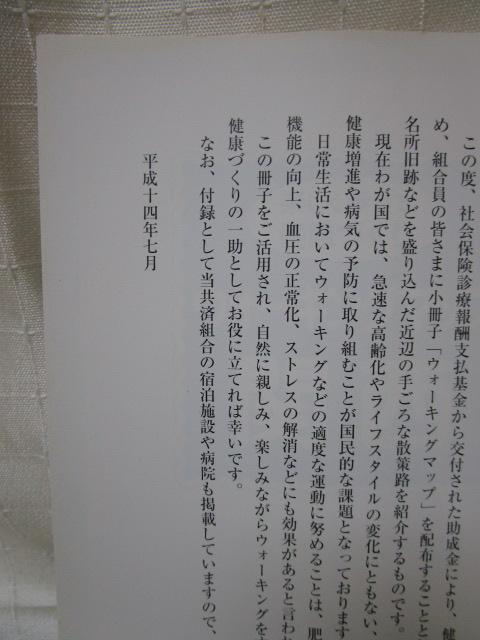 この度、社会保険診療報酬支払基金から交付された助成金により、健
め、組合員の皆さまに小冊子「ウォーキングマップ」を配布することと
名所旧跡などを盛り込んだ近辺の手ごろな散策路を紹介するものです。
現在わが国では、急速な高齢化やライフスタイルの変化にともない
健康増進や病気の予防に取り組むことが国民的な課題となっております
日常生活においてウォーキングなどの適度な運動に努めることは、肥
機能の向上、血圧の正常化、ストレスの解消などにも効果があると言わ
この冊子をご活用され、自然に親しみ、楽しみながらウォーキングを
健康づくりの一助としてお役に立てれば幸いです。
なお、付録として当共済組合の宿泊施設や病院も掲載していますので、
平成十四年七月